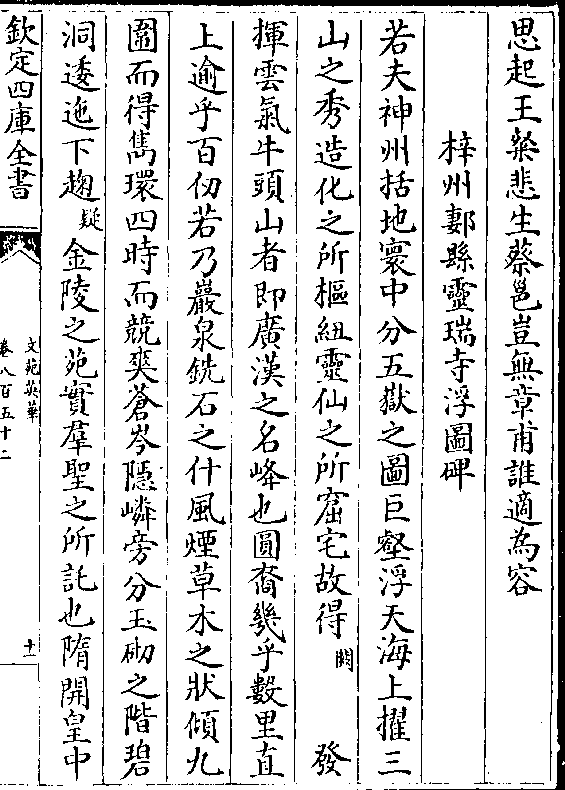 思起王粲悲生蔡邕豈無章甫誰適為容
梓州郪縣靈瑞寺浮圖碑
若夫神州括地寰中分五嶽之圖巨壑浮天海上擢三
山之秀造化之所樞紐靈仙之所窟宅故得闕發
揮雲氣牛頭山者即廣漢之名峰也圓裔幾乎數里直
上逾乎百仞若乃巖泉銑石之什風煙草木之狀傾九
圍而得雋環四時而競爽蒼岑隱嶙旁分玉砌之階碧
洞逶迤下趨疑金陵之苑實羣聖之所託也隋開皇中
欽定四庫全書
文苑英華
卷八百五十二
十一